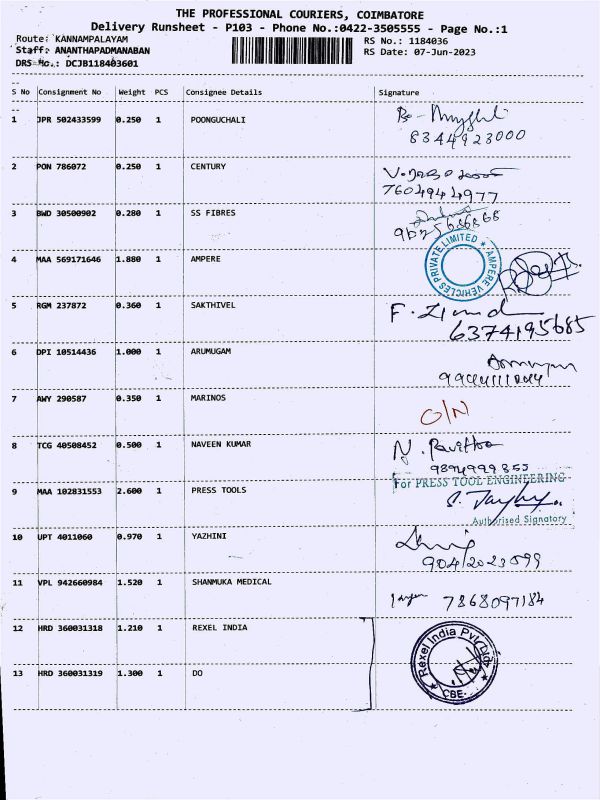 THE PROFESSIONAL COURIERS, COIMBATORE
Delivery Runsheet - P103 - Phone No.:0422-3505555 - Page No.:1
Route: KANNAMPALAYAM RS No.: 1184036
Staff: ANANTHAPADMANABAN RS Date: 07-Jun-2023
DRS No.: DCJB118403601
S No Consignment No Weight PCS Consignee Details Signature
1 JPR 502433599 0.250 1 POONGUCHALI
8344923000
2 PON 786072 0.250 1 CENTURY
7604944977
3 BWD 30500902 0.280 1 SS FIBRES
4 MAA 569171646 1.880 1 AMPERE AMPERE VEHICLES PRIVATE LIMITED
5 RGM 237872 0.360 1 SAKTHIVEL
6374195685
6 DPI 10514436 1.000 1 ARUMUGAM
7 AWY 290587 0.350 1 MARINOS
O/N
8 TCG 40508452 0.500 1 NAVEEN KUMAR N. Pavithra
9894999855
For PRESS TOOL ENGINEERING
9 MAA 102831553 2.600 1 PRESS TOOLS
Authorised Signatory
10 UPT 4011060 0.970 1 YAZHINI
9042023599
11 VPL 942660984 1.520 1 SHANMUKA MEDICAL 7868097184
12 HRD 360031318 1.210 1 REXEL INDIA Rexel India Pvt Ltd
CBE.
13 HRD 360031319 1.300 1 DO